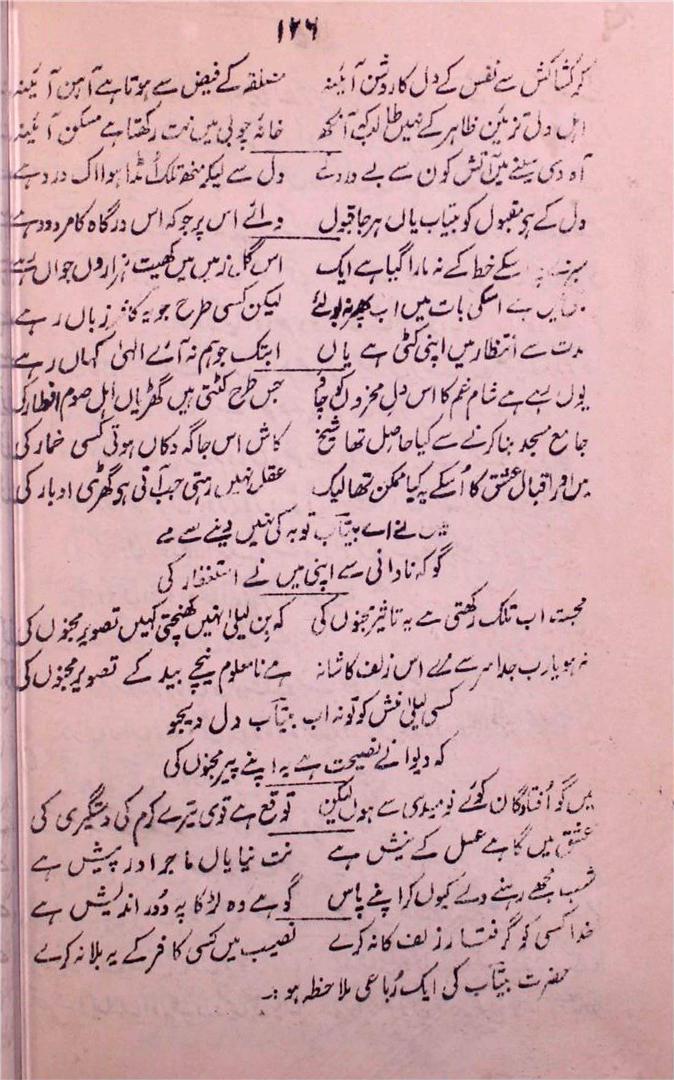 ۱۲۶
کر کشاکش سے نفس کے دل کا روشن آئینہ مصقلہ کے فیض سے ہوتا ہے آہن آئینہ
اہل دل تزئین ظاہر کے نہیں طالب کہیں آنکھ خانۂ چوبی میں نت رکھتا ہے مسکن آئینہ
آہ دی سینے میں آتش کون سے بے درد نے دل سے لیکر منھ تلک اُمڈا ہوا اک درد ہے
دل کے ہی مقبول کو بیتاب یاں ہر جا قبول وائے اس پر جو کہ اس درگاہ کا مردود ہے
سبزے پہ اسکے خط کے نہ مارا گیا ہے ایک اس گل زمیں میں کھیت ہزاروں جواں رہے
ہے اسکی بات میں اب پھر نہ بولئے لیکن کسی طرح جو یہ کافر زباں رہے
مدت سے انتظار میں اپنی کٹی ہے یاں ابتک جو ہم نہ آئے الٰہی کہاں رہے
یوں ہے ہے شام غم کا اس دل محزوں کو چاؤ جس طرح کٹتی ہیں گھڑیاں اہل صوم افطار کی
جامع مسجد بنا کرنے سے کیا حاصل تھا شیخ کاش اس جاگہ دکاں ہوتی کسی خمار کی
میں اور اقبال عشق کا اُسکے یہ کیا ممکن تھا لیک عقل نہیں رہتی جب آتی ہو گھڑی ادبار کی
میں نے اے بیتاب توبہ کی نہیں پینے سے مے
گو کہ نادانی سے اپنی میں نے استغفار کی
محبت اب تلک رکھتی ہے یہ تاثیر جنوں کی کہ بن لیلیٰ نہیں کھنچتی کہیں تصویر مجنوں کی
نہ ہو یارب جدا سر سے مرے اس زلف کا شانہ ہے نامعلوم نیچے بید کے تصویر مجنوں کی
کسی لیلیٰ منش کو تو نہ اب بیتاب دل دیجو
کہ دیوانے نصیحت ہے یہ اپنے پیر مجنوں کی
میں گو اُفتادگان کوئے نومیدی سے ہوں لیکن توقع ہے قوی تیرے کرم کی دستگیری کی
عشق میں گاہے عسل گہ نیش ہے نت نیا یاں ماجرا درپیش ہے
شب مجھے رہنے دے کیوں کر اپنے پاس گو ہے وہ لڑکا پہ دُور اندیش ہے
خدا کسی کو گرفتار زلف کا نہ کرے نصیب میں کسی کافر کے یہ بلا نہ کرے
حضرت بیتاب کی ایک رُباعی ملاحظہ ہو :۔